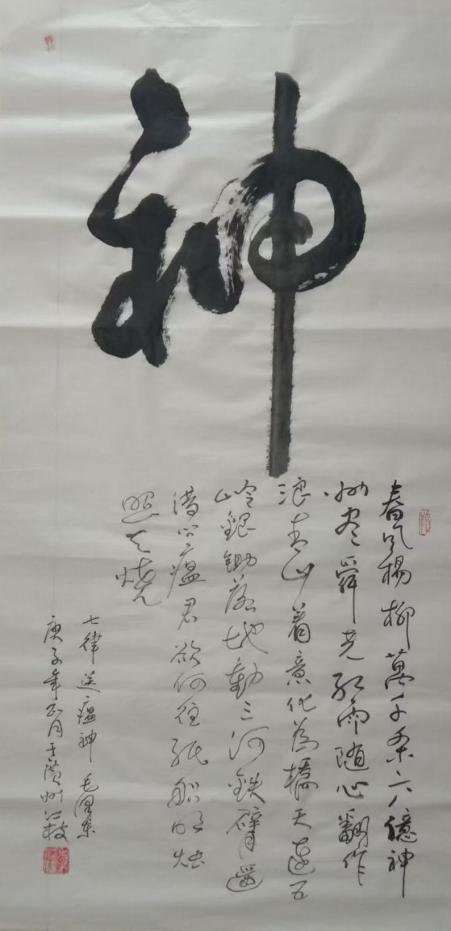 神
春风楊柳萬千条六億神
州尽舜尧红雨随心翻作
浪青山着意化為橋天连五
岭銀鋤落地動三河鉄臂摇
借问瘟君欲何往纸船明烛
照天烧
七律送瘟神 毛澤东
庚子年正月于廣州